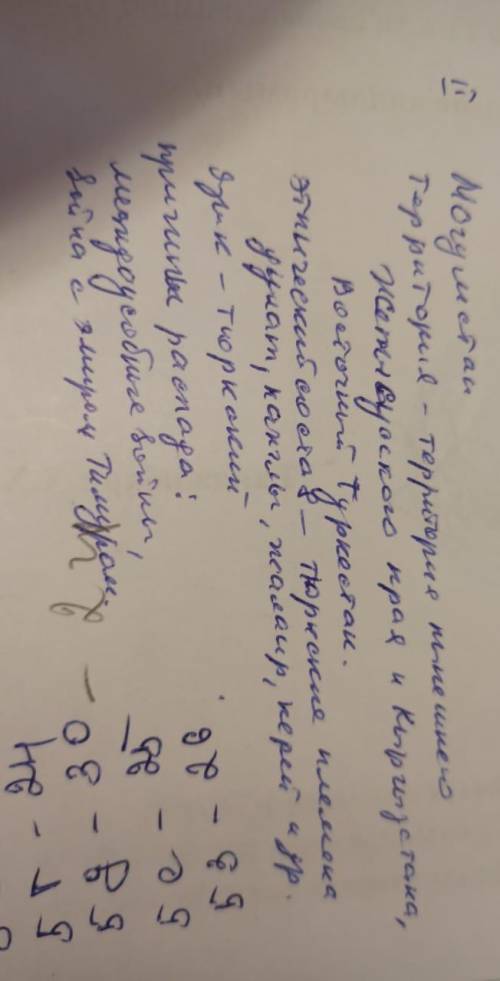 II
Могулистан
Территория – территория нынешнего
Жетысуского края и Кыргызстана,
Восточный Туркестан.
этнический состав – тюркские племена
дулат, канглы, жалаир, керей и др.
язык – тюркский
причины распада:
междоусобные войны,
война с эмиром Тимуром.
5 3 - 26
5 с - 25
5 в - 30 -
5 г - 24